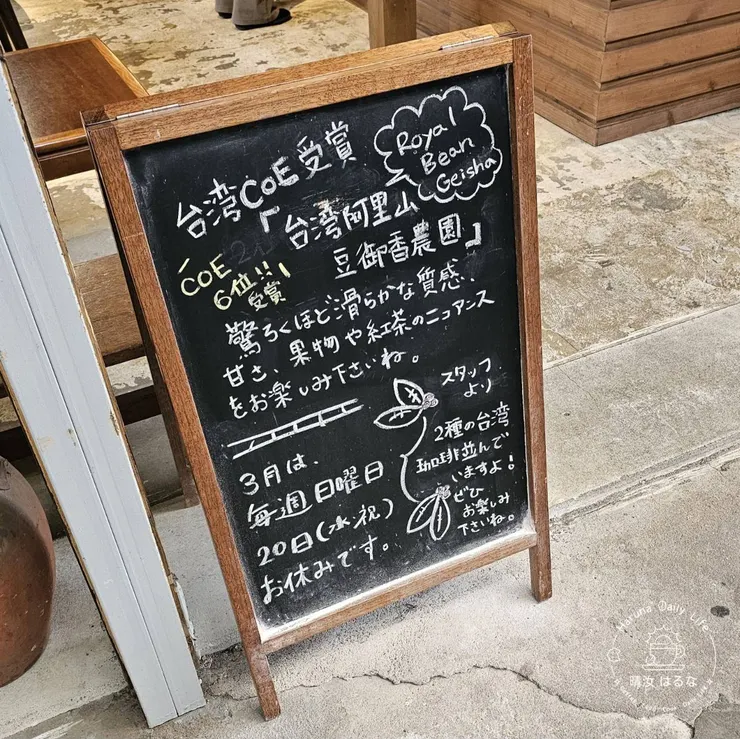 台湾CoE受賞
Royal
Bean
Geisha
「台湾阿里山
豆御香農園」
COE
6位!!
受賞!
驚ろくほど滑らかな質感、
甘さ、果物や紅茶のニュアンス
をお楽しみ下さいね。
スタッフ
より
2種の台湾
珈琲並んで
いますよ!
ぜひ
お楽しみ
下さいね。
3月は、
毎週日曜日
20日(水・祝)
お休みです。
Haruna Daily Life
晴汝 はるな